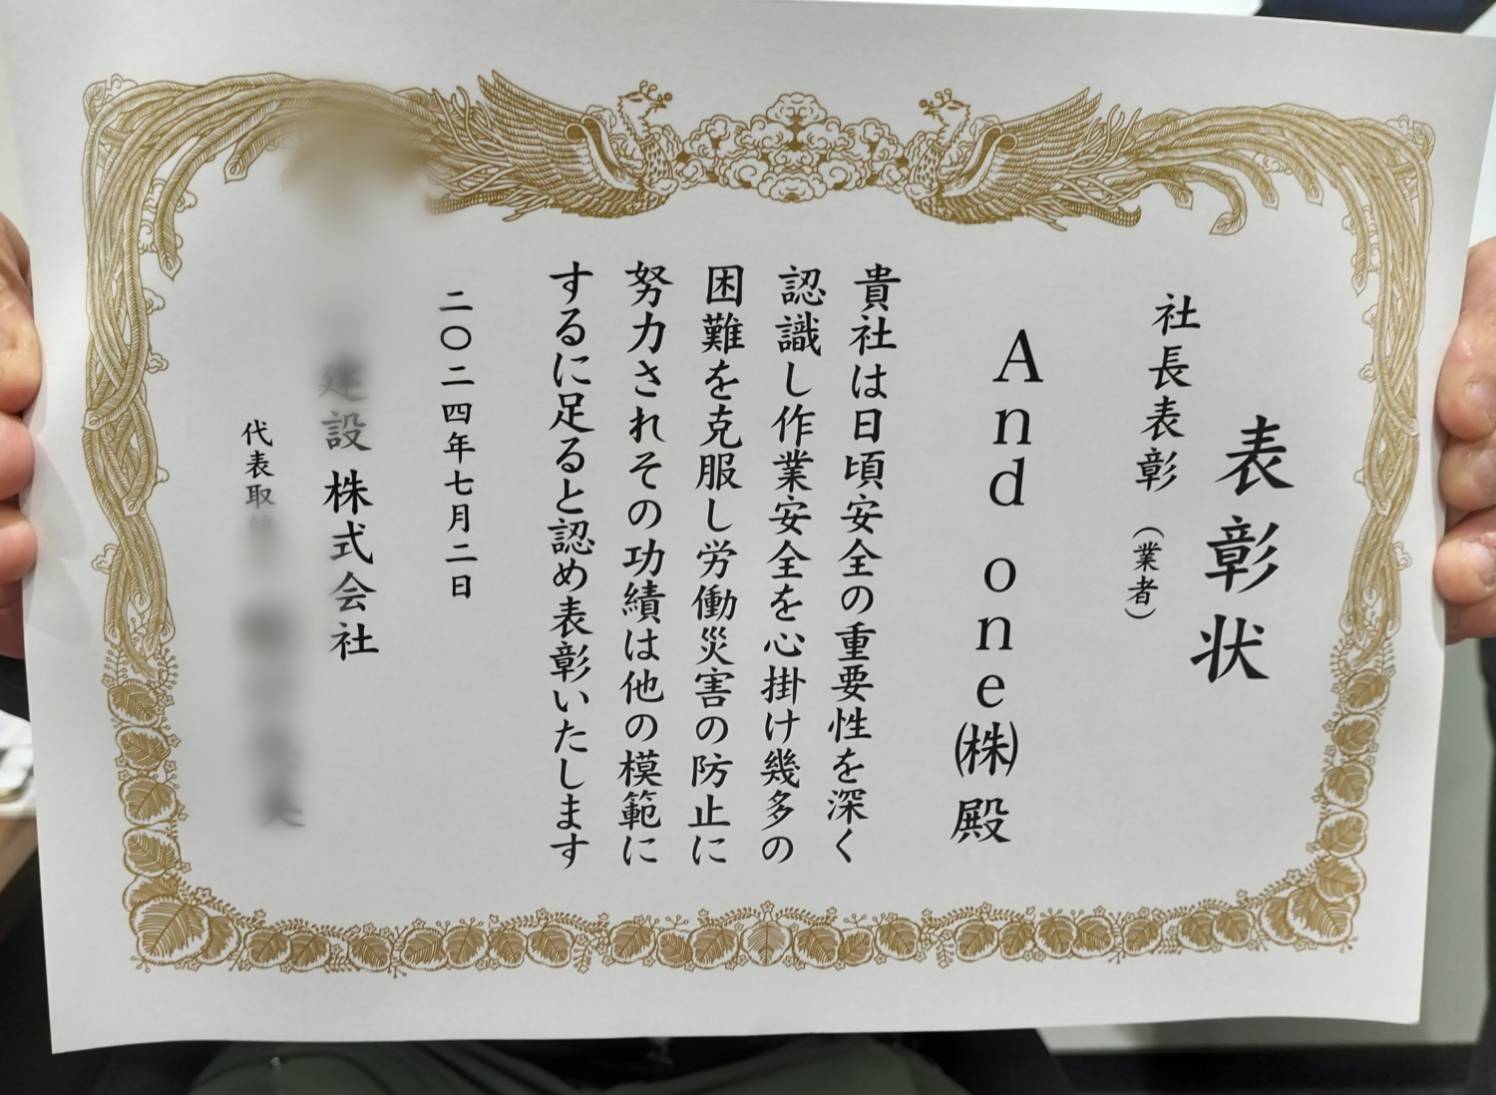 表彰状
社長表彰（業者）
And one㈱殿
貴社は日頃安全の重要性を深く
認識し作業安全を心掛け幾多の
困難を克服し労働災害の防止に
努力されその功績は他の模範に
するに足ると認め表彰いたします
二〇二四年七月二日
建設株式会社
代表取